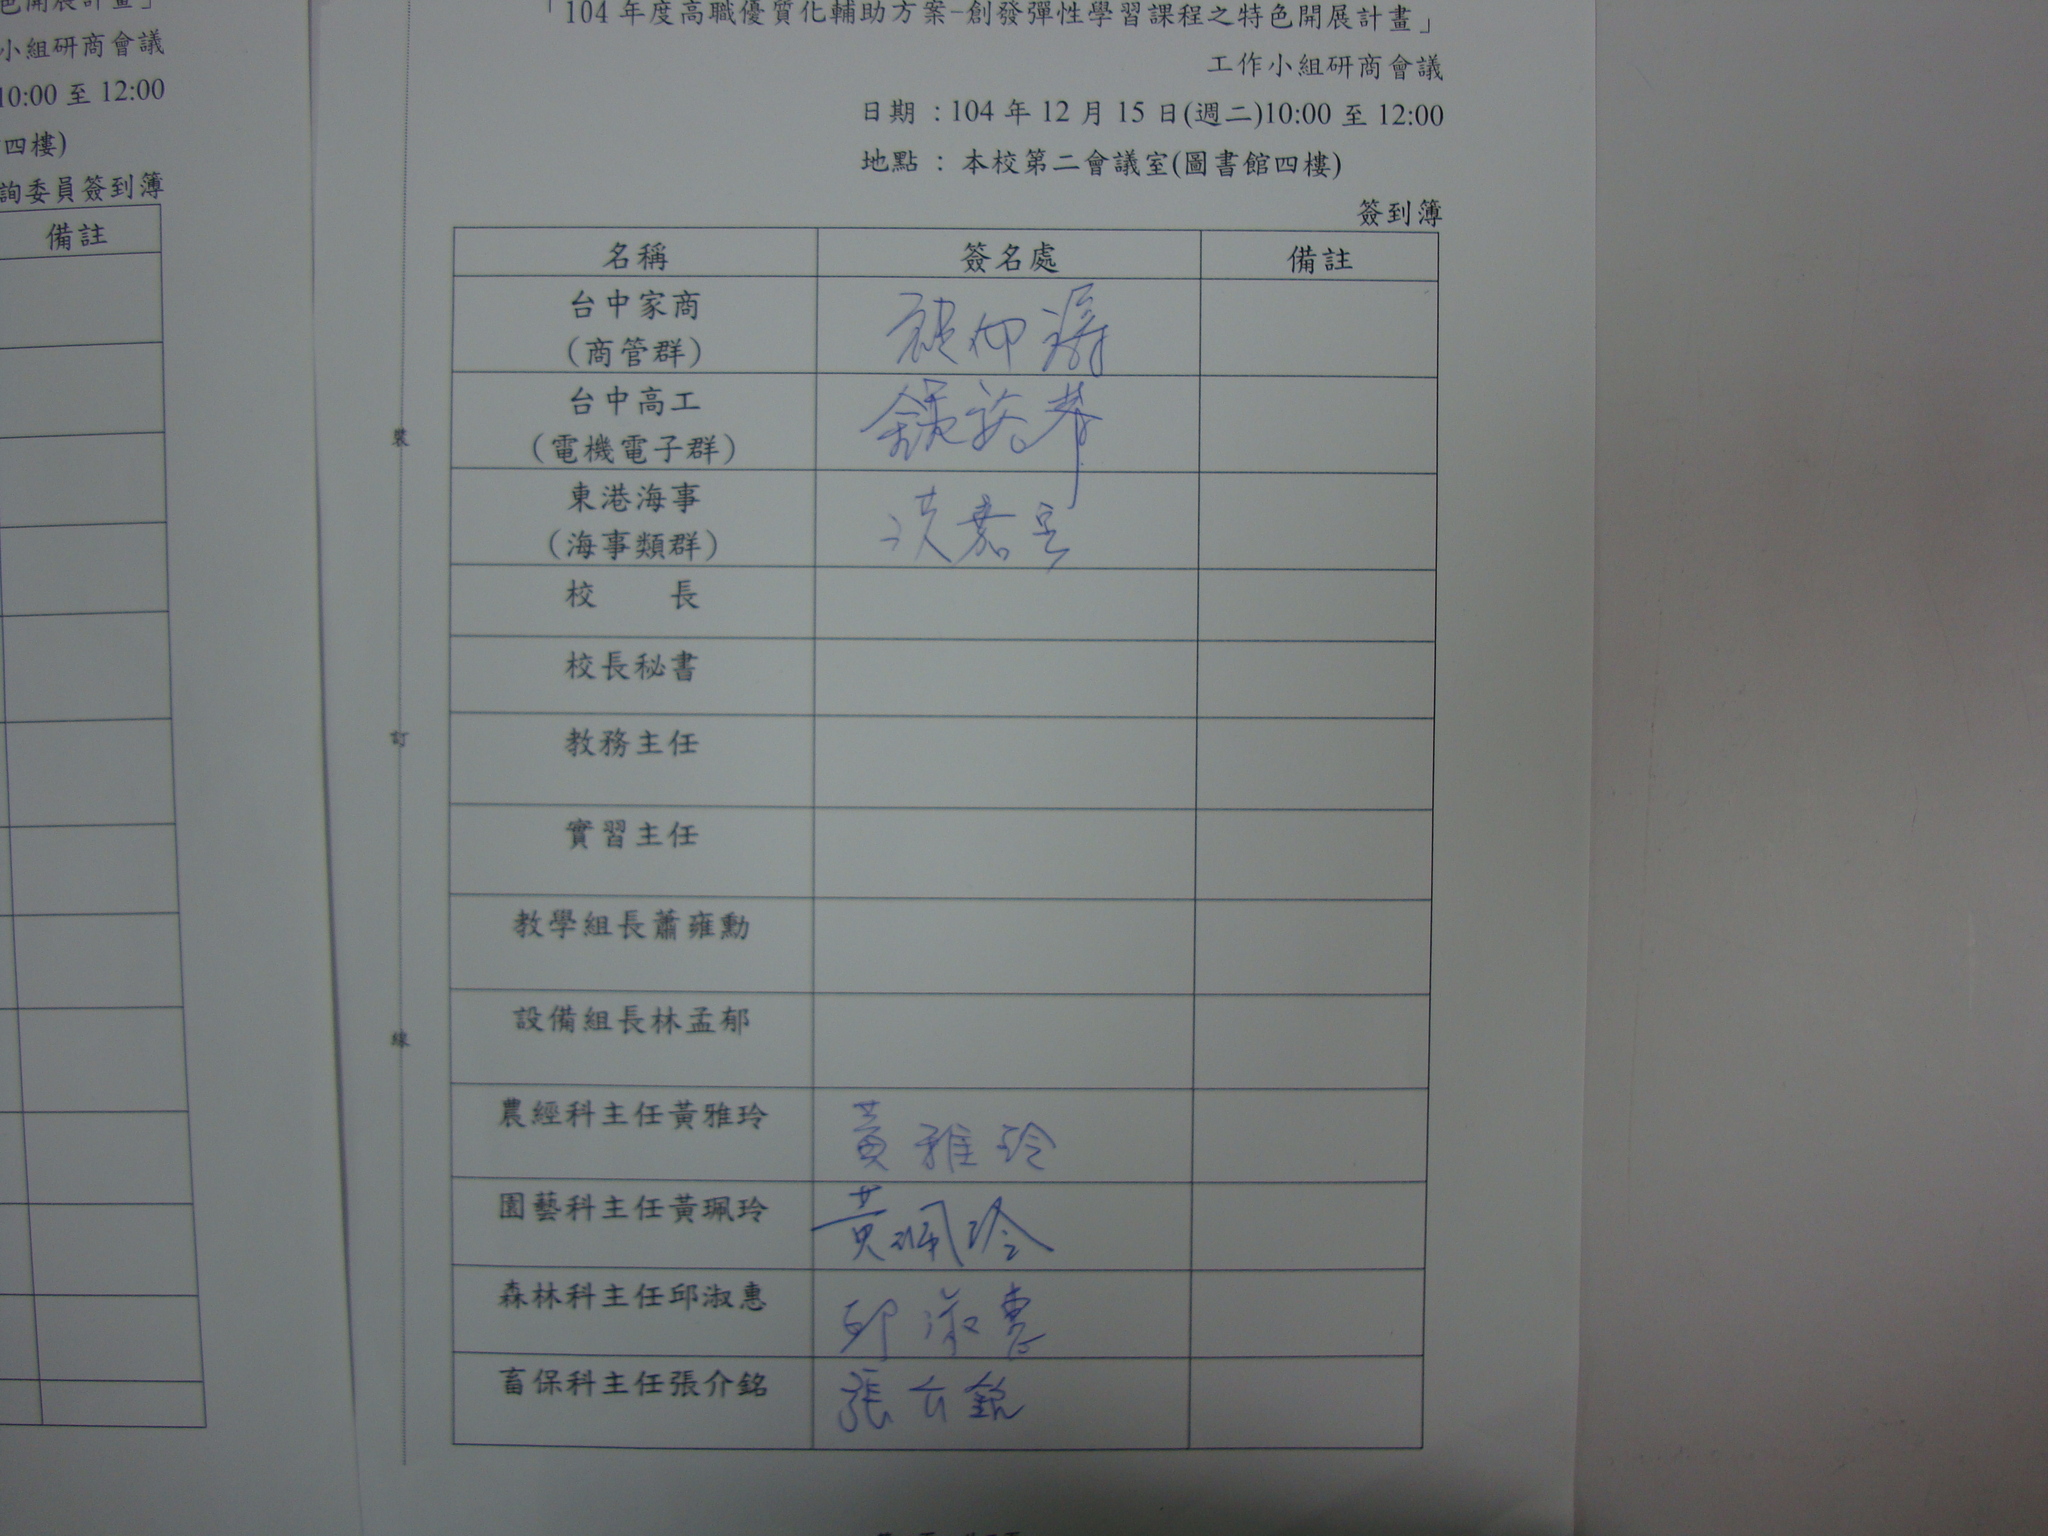 色開展計畫」
小組研商會議
10:00 至 12:00
四樓)
詢委員簽到簿
備註
「104 年度高職優質化輔助方案-創發彈性學習課程之特色開展計畫」
工作小組研商會議
日期 : 104 年 12 月 15 日(週二)10:00 至 12:00
地點 : 本校第二會議室(圖書館四樓)
簽到簿
名稱 簽名處 備註
台中家商
(商管群)
台中高工
(電機電子群)
東港海事
(海事類群)
洪嘉
校 長
校長秘書
教務主任
實習主任
教學組長蕭雍勳
設備組長林孟郁
農經科主任黃雅玲 黃雅玲
園藝科主任黃珮玲 黃珮玲
森林科主任邱淑惠 邱淑惠
畜保科主任張介銘 張介銘
裝
訂
線